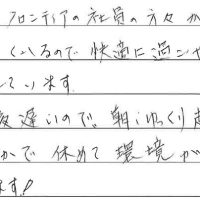 フロンティアの社員の方々が
くいるので快適に過ごせ
ています。
夜遅いので、朝ゆっくり起
かで休めて環境が
ます!